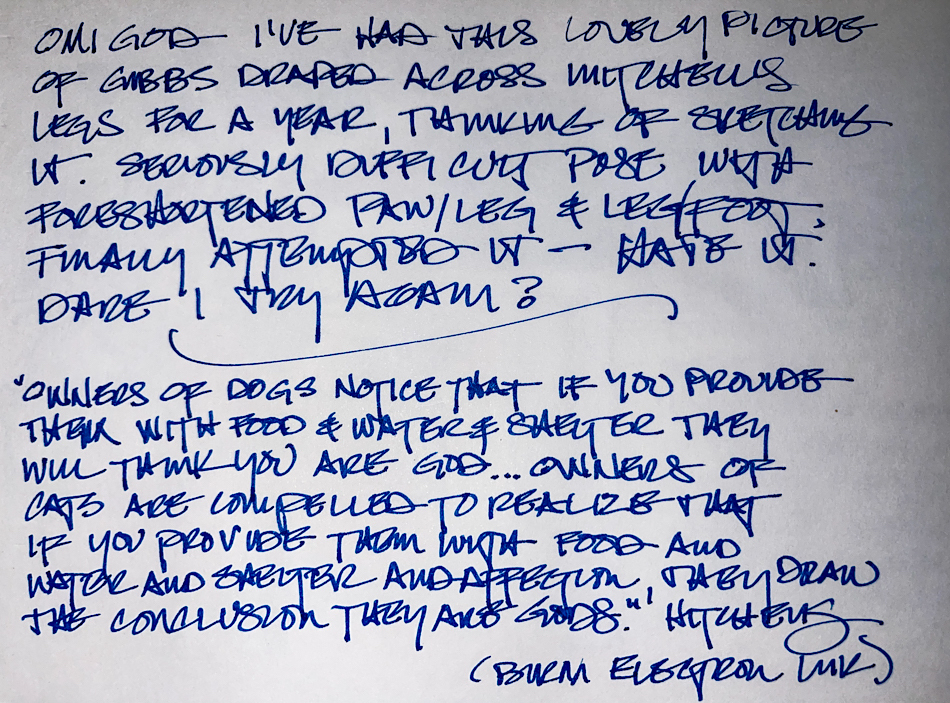 OMIGOD I'VE HAD THIS LOVELY PICTURE
OF GIBBS DRAPED ACROSS MITCHELL'S
LEGS FOR A YEAR, THINKING OF SKETCHING
IT. SERIOUSLY DIFFICULT POSE WITH
FORESHORTENED PAW/LEG & LEG/FOOT.
FINALLY ATTEMPTED IT — HATE IT.
DARE I TRY AGAIN?
"OWNERS OF DOGS NOTICE THAT IF YOU PROVIDE
THEM WITH FOOD & WATER & SHELTER THEY
WILL THINK YOU ARE GOD... OWNERS OF
CATS ARE COMPELLED TO REALIZE THAT
IF YOU PROVIDE THEM WITH FOOD AND
WATER AND SHELTER AND AFFECTION, THEY DRAW
THE CONCLUSION THEY ARE GODS." HITCHENS
(BIRM ELECTRON INK)